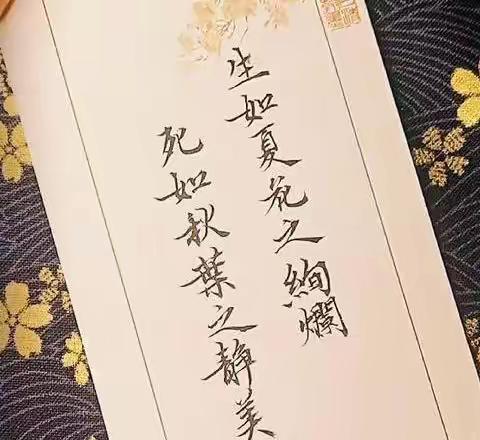 生如夏花之絢爛
死如秋葉之静美